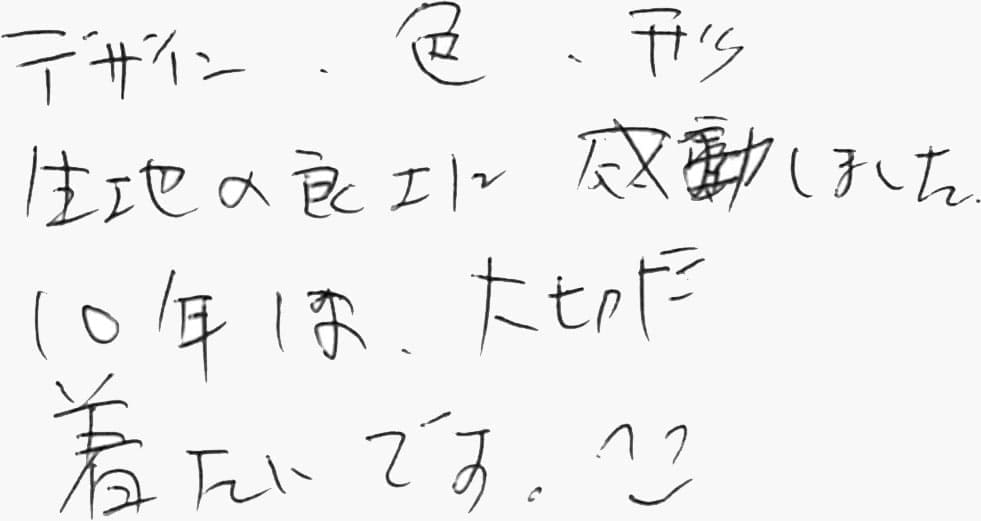 デザイン、色、形
生地の良さに感動しました.
10年は、大切に
着たいです。